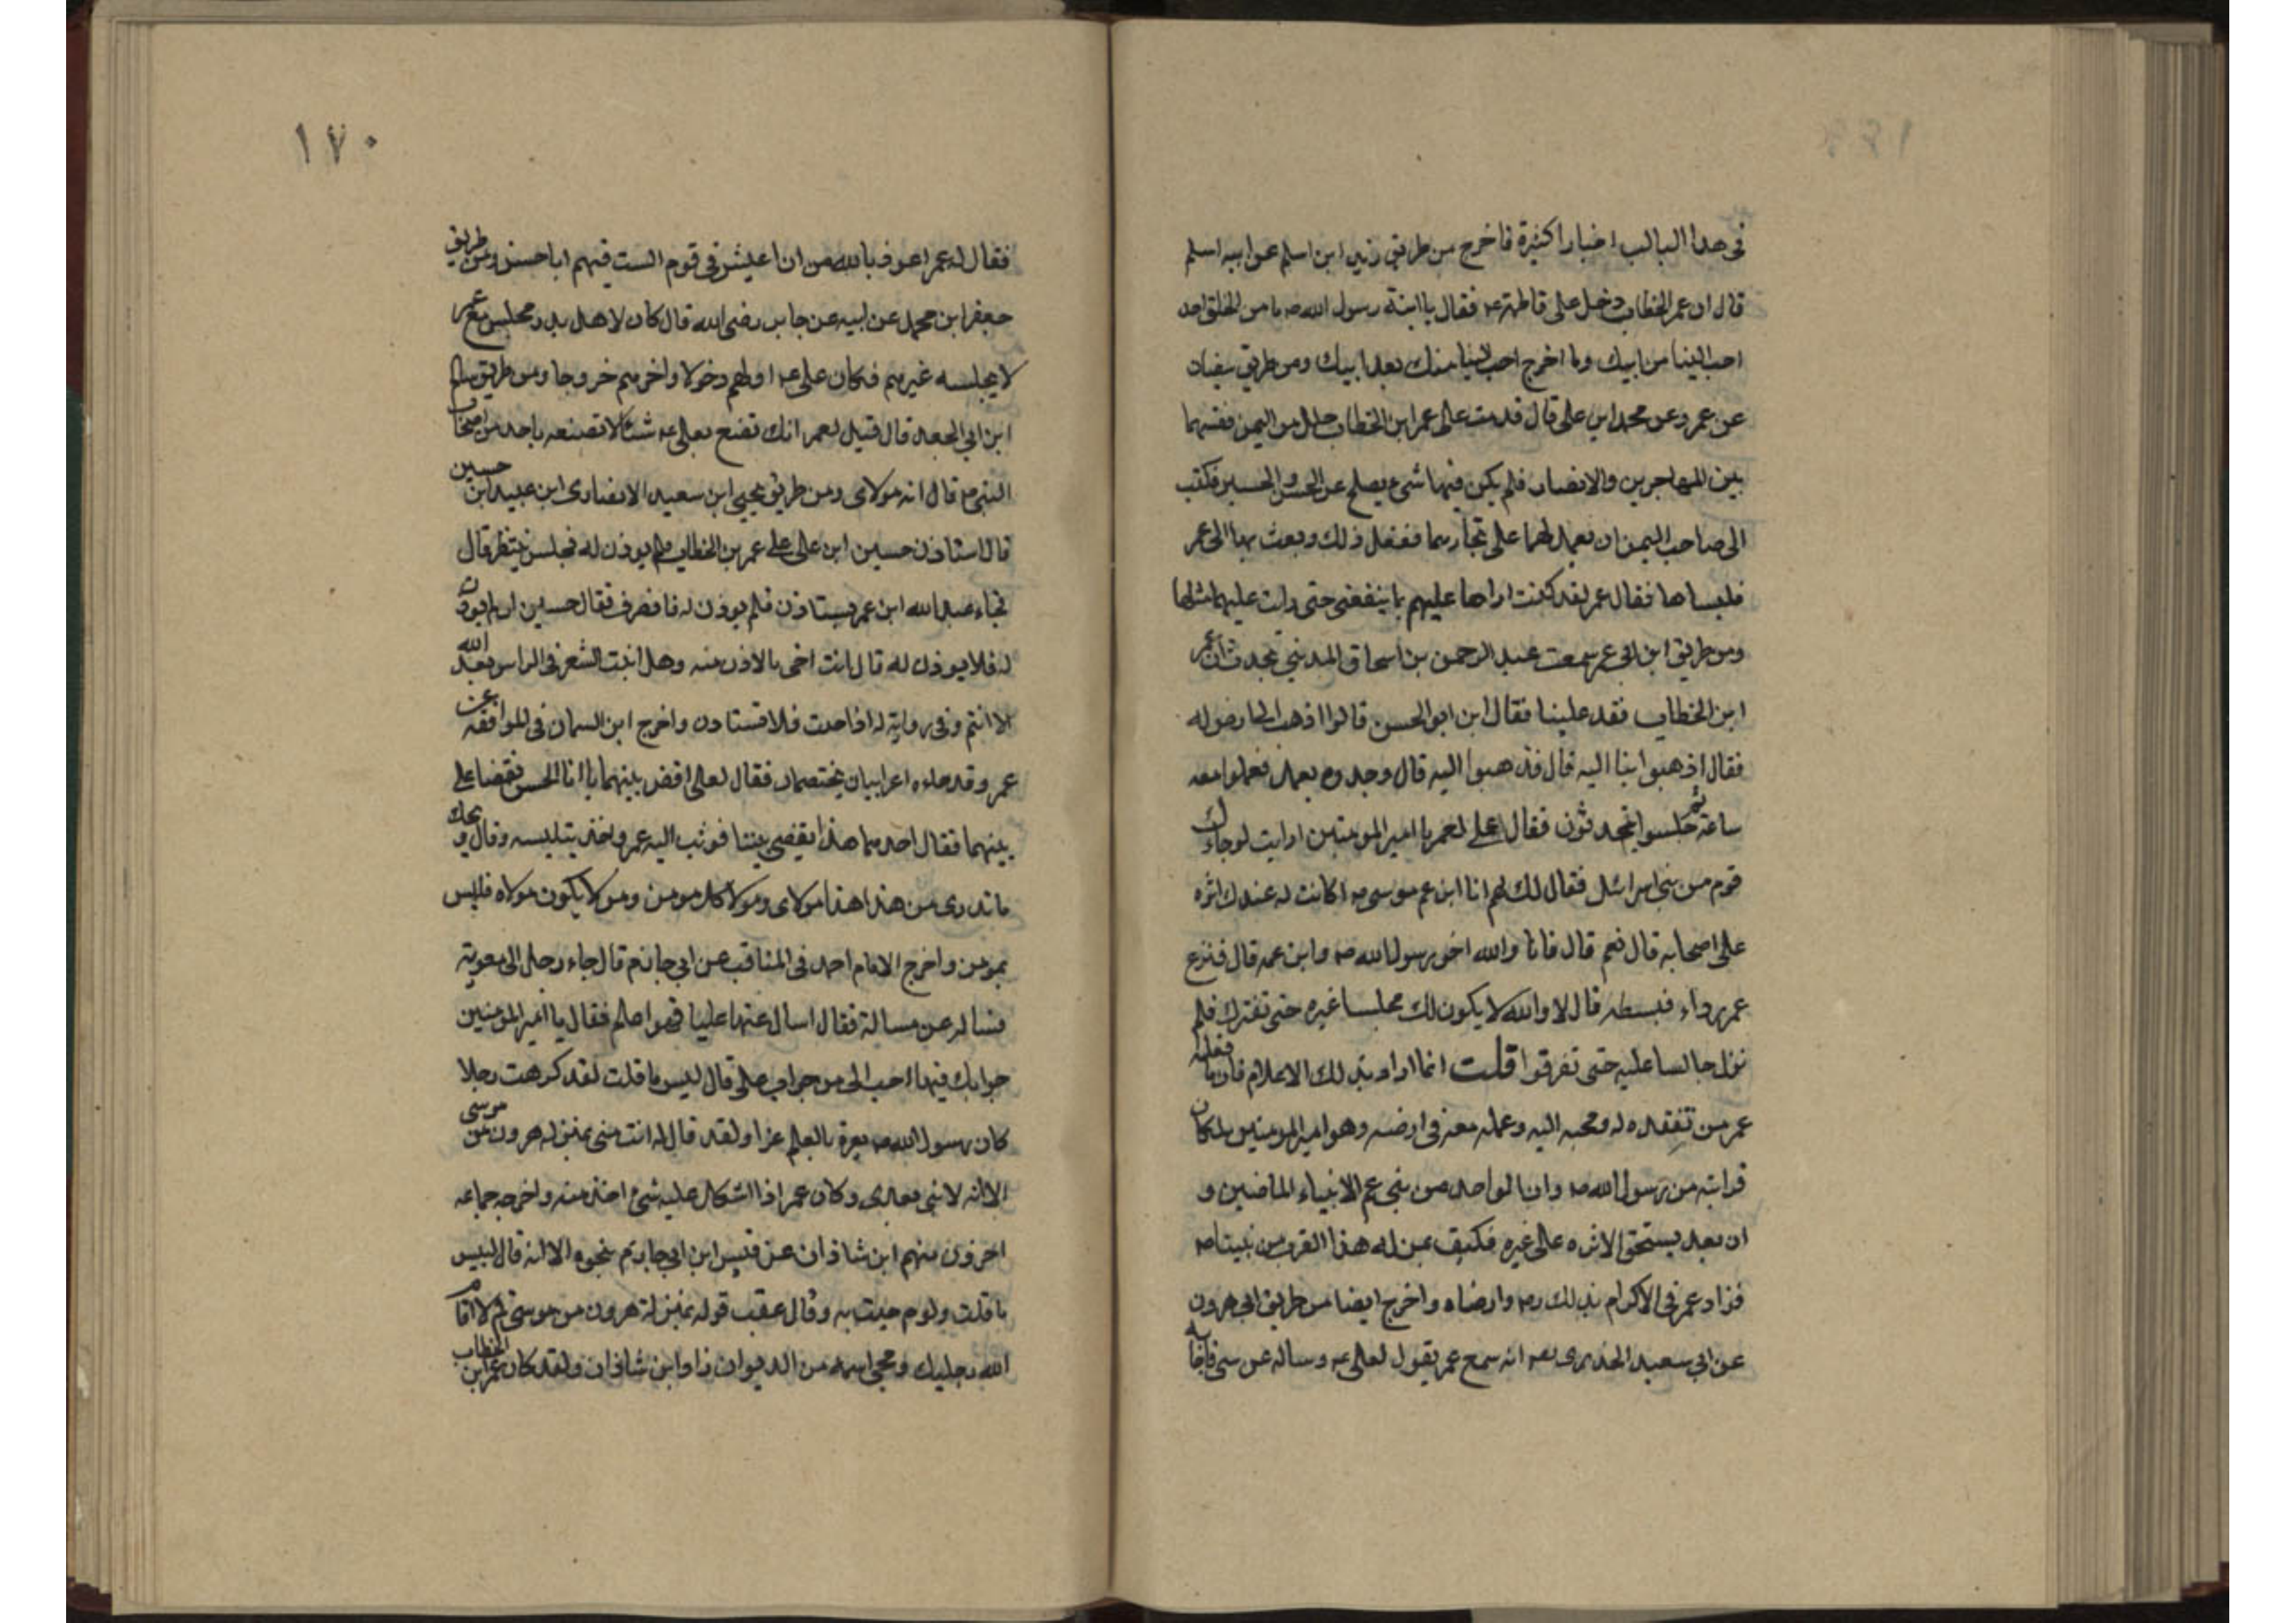 في هذا الباب اخبارا كثيرة فاخرج من طريق زيد ابن اسلم عن ابيه اسلم
قال ان عمر الخطاب دخل على فاطمة عه فقال يا ابنة رسول الله صه ما من الخلق احد
احب الينا من ابيك وما اخرج احب الينا منك بعد ابيك ومن طريق سفيان
عن عمر وعن محمد ابن على قال قدمت على عمر ابن الخطاب حلل من اليمن فقسمها
بين المهاجرين والانصار فلم يكن فيها شيء يصلح عن الحسن والحسين فكتب
الى صاحب اليمن ان يعمل لهما على فففعل ذلك وبعث بها الى عمر
فلبساها فقال عمر لقد كنت اراها عليهم ما ينفعنى حتى رايت عليهما مثلها
ومن طريق ابن ابى عمر سمعت عبد الرحمن بن اسحاق المدينى يحدث ان عمر
ابن الخطاب فقد علينا فقال ابن ابو الحسن قالوا اذهب
فقال اذهبوا بنا اليه قال فذهبوا اليه قال وجدوه يعمل فعملوا معه
ساعة ثم جلسوا يتحدثون فقال على لعمر يا امير المومنين ارايت لو جاءك
قوم من بنى اسرائل فقال لك لهم انا ابن عم موسى صه اكانت له عندك اثره
على اصحابه قال نعم قال فانا والله اخو رسول الله صه وابن عمه قال فنزع
عمر رداء فبسطه قال لا والله لا يكون لك مجلسا غيره حتى تفترك فلم
نزل جالسا عليه حتى تفرقوا قلت انما اراد بذلك الاعلام فان ما فعله
عمر من تفقده له ومحبه اليه وعمله معه فى ارضه وهو امير المومنين لمكان
قرابته من رسول الله صه وان الواحد من بنى عم الانبياء الماضين و
ان بعد يستحق الاثره على غيره فكيف بمن له هذا القرب من نبينا صه
فزاد عمر فى الاكرام بذلك وارضاه واخرج ايضا من طريق ابى هرون
عن ابى سعيد الخدرى رعه انه سمع عمر يقول لعلى عه وساله عن شى فاجابه
١٧٠
فقال له عمر اعوذ بالله من ان اعيش فى قوم الست فيهم ابا حسن ومن طريق
جعفر ابن محمد عن ابيه عن جابر رضى الله قال كان لاهل بدر مجلس مع عمر
لا يجلسه غيرهم فكان على عه اولهم دخولا واخرهم خروجا ومن طريق سالم
ابن ابى الجعد قال قيل لعمر انك تصنع بعلى عه شيئا لا تصنعه باحد من اصحاب
النبى صه قال انه مولاى ومن طريق يحيى ابن سعيد الانصارى ابن عبيد ابن حسين
قال استاذن حسين ابن على على عمر بن الخطاب فلم يوذن له فجلس ينتظر قال
فجاء عبد الله ابن عمر يستاذن فلم يوذن له فانصرف فقال حسين ان لم يوذن
له فلا يوذن له قال انت احق بالاذن منه وهل انبت الشعر فى الراس بعد الله
الا انتم وفى رواية له اذا جئت فلا تستاذن واخرج ابن السمان فى الموافقه عن
عمر وقد جاءه اعرابيان يختصمان فقال لعلى اقض بينهما يا ابا الحسن فقضا على
بينهما فقال احدهما هذا يقضى بيننا فوثب اليه عمر واخذ بتلبيبه وقال ويحك
ما تدرى من هذا هذا مولاى ومولا كل مومن ومن لا يكون مولاه فليس
بمومن واخرج الامام احمد فى المناقب عن ابى حازم قال جاء رجل الى معويه
فساله عن مسالة فقال اسال عنها عليا فهو اعلم فقال يا امير المومنين
جوابك فيها احب الى من جواب على قال لبيس ما قلت لقد كرهت رجلا
كان رسول الله صه يعزه بالعلم عزا ولقد قال له انت منى بمنزلة هرون من موسى
الا انه لا نبى بعدى وكان عمر اذا اشكال عليه شئ اخذ منه واخرجه جماعه
اخرون منهم ابن شاذان عن قيس ابن ابى حازم بنحوه الا انه قال لبيس
ما قلت ولوم جيت به وقال عقب قوله بمنزلة هرون من موسى قم لا اقام
الله رجليك ومحى اسمه من الديوان زاد ابن شاذان ولقد كان عمر ابن الخطاب